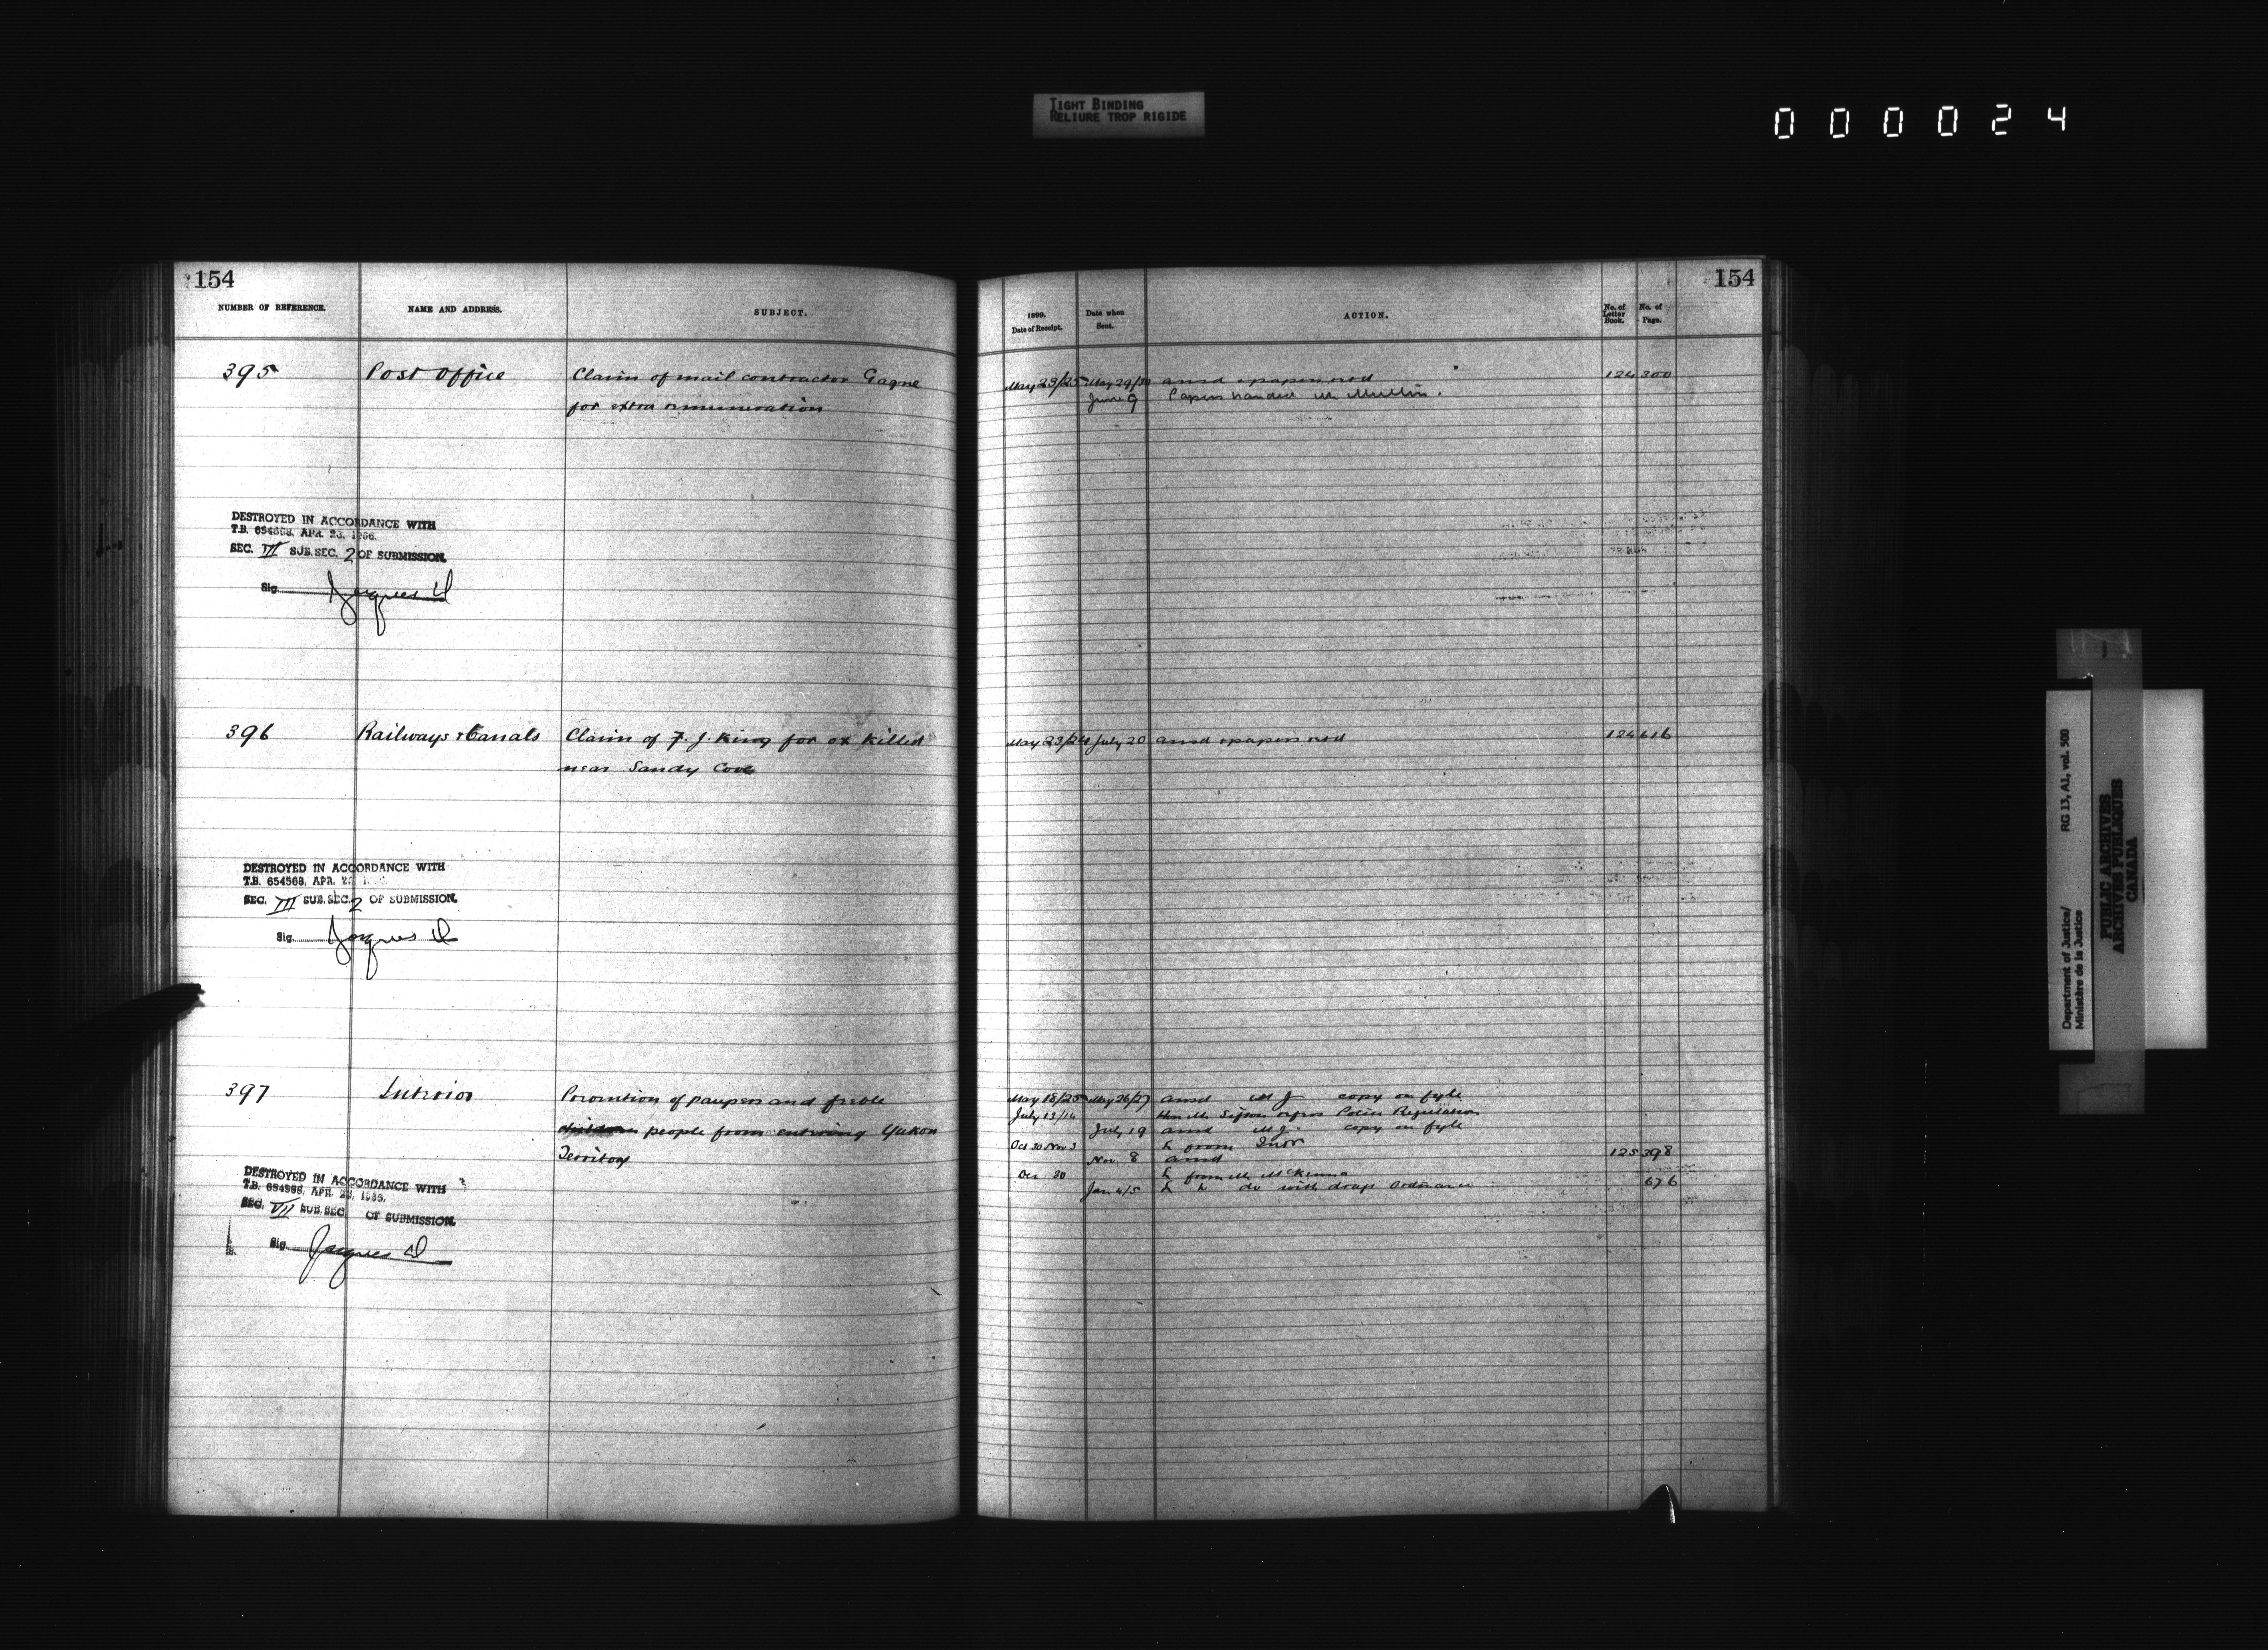 TIGHT BINDING
RELIURE TROP RIGIDE
000024
154
NUMBER OF REFERENCE. NAME AND ADDRESS. SUBJECT.
395 Post Office Claim of mail contractor Gagne
for extra remuneration
DESTROYED IN ACCORDANCE WITH
T.B. 654568, APR. 23, 1966.
SEC. VII SUB. SEC. 2 OF SUBMISSION.
Sig. Jacques
396 Railways & Canals Claim of F. J. King for ox killed
near Sandy Cove
DESTROYED IN ACCORDANCE WITH
T.B. 654568, APR. 23
SEC. III SUB. SEC. 2 OF SUBMISSION.
Sig. Jacques
397 Interior Prevention of paupers and feeble
people from entering Yukon
Territory
DESTROYED IN ACCORDANCE WITH
T.B. 654568, APR. 23, 1966.
SEC. VII SUB. SEC. OF SUBMISSION.
Sig. Jacques
154
1899. Date of Receipt. Date when Sent. ACTION. No. of Letter Book. No. of Page.
May 23/25 May 29/30 ansd & papers retd 124 300
June 9 Papers handed Mr Mullin.
May 23/24 July 20 ansd & papers retd 124 616
May 18/25 May 26/27 ansd M J copy on fyle
July 13/14 Hon Mr Sifton Police Regulation
July 19 ansd M J. copy on fyle
Oct 30 Nov 3 L from Intr
Nov 8 ansd 125 398
Dec 30 L from Mr McKenna
Jan 4/5 L to do with draft Ordinance 676
Department of Justice/ RG 13, A1, vol. 500
Ministère de la Justice
PUBLIC ARCHIVES
ARCHIVES PUBLIQUES
CANADA